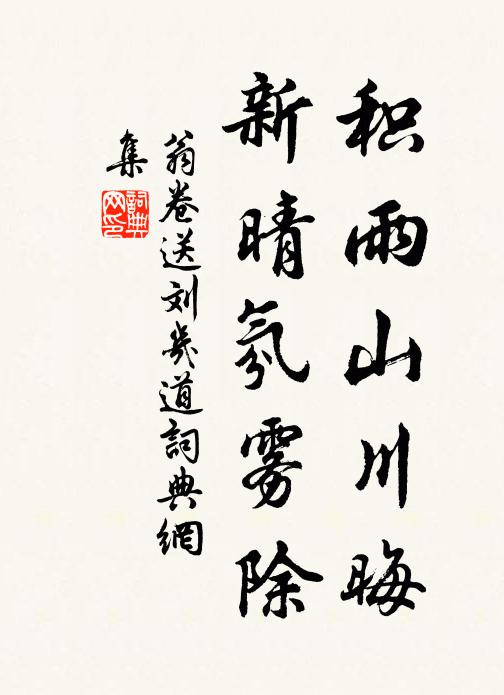 积雨山川晦
新晴氛雾除
翁卷送刘几道詞典網
集
詞典
网印